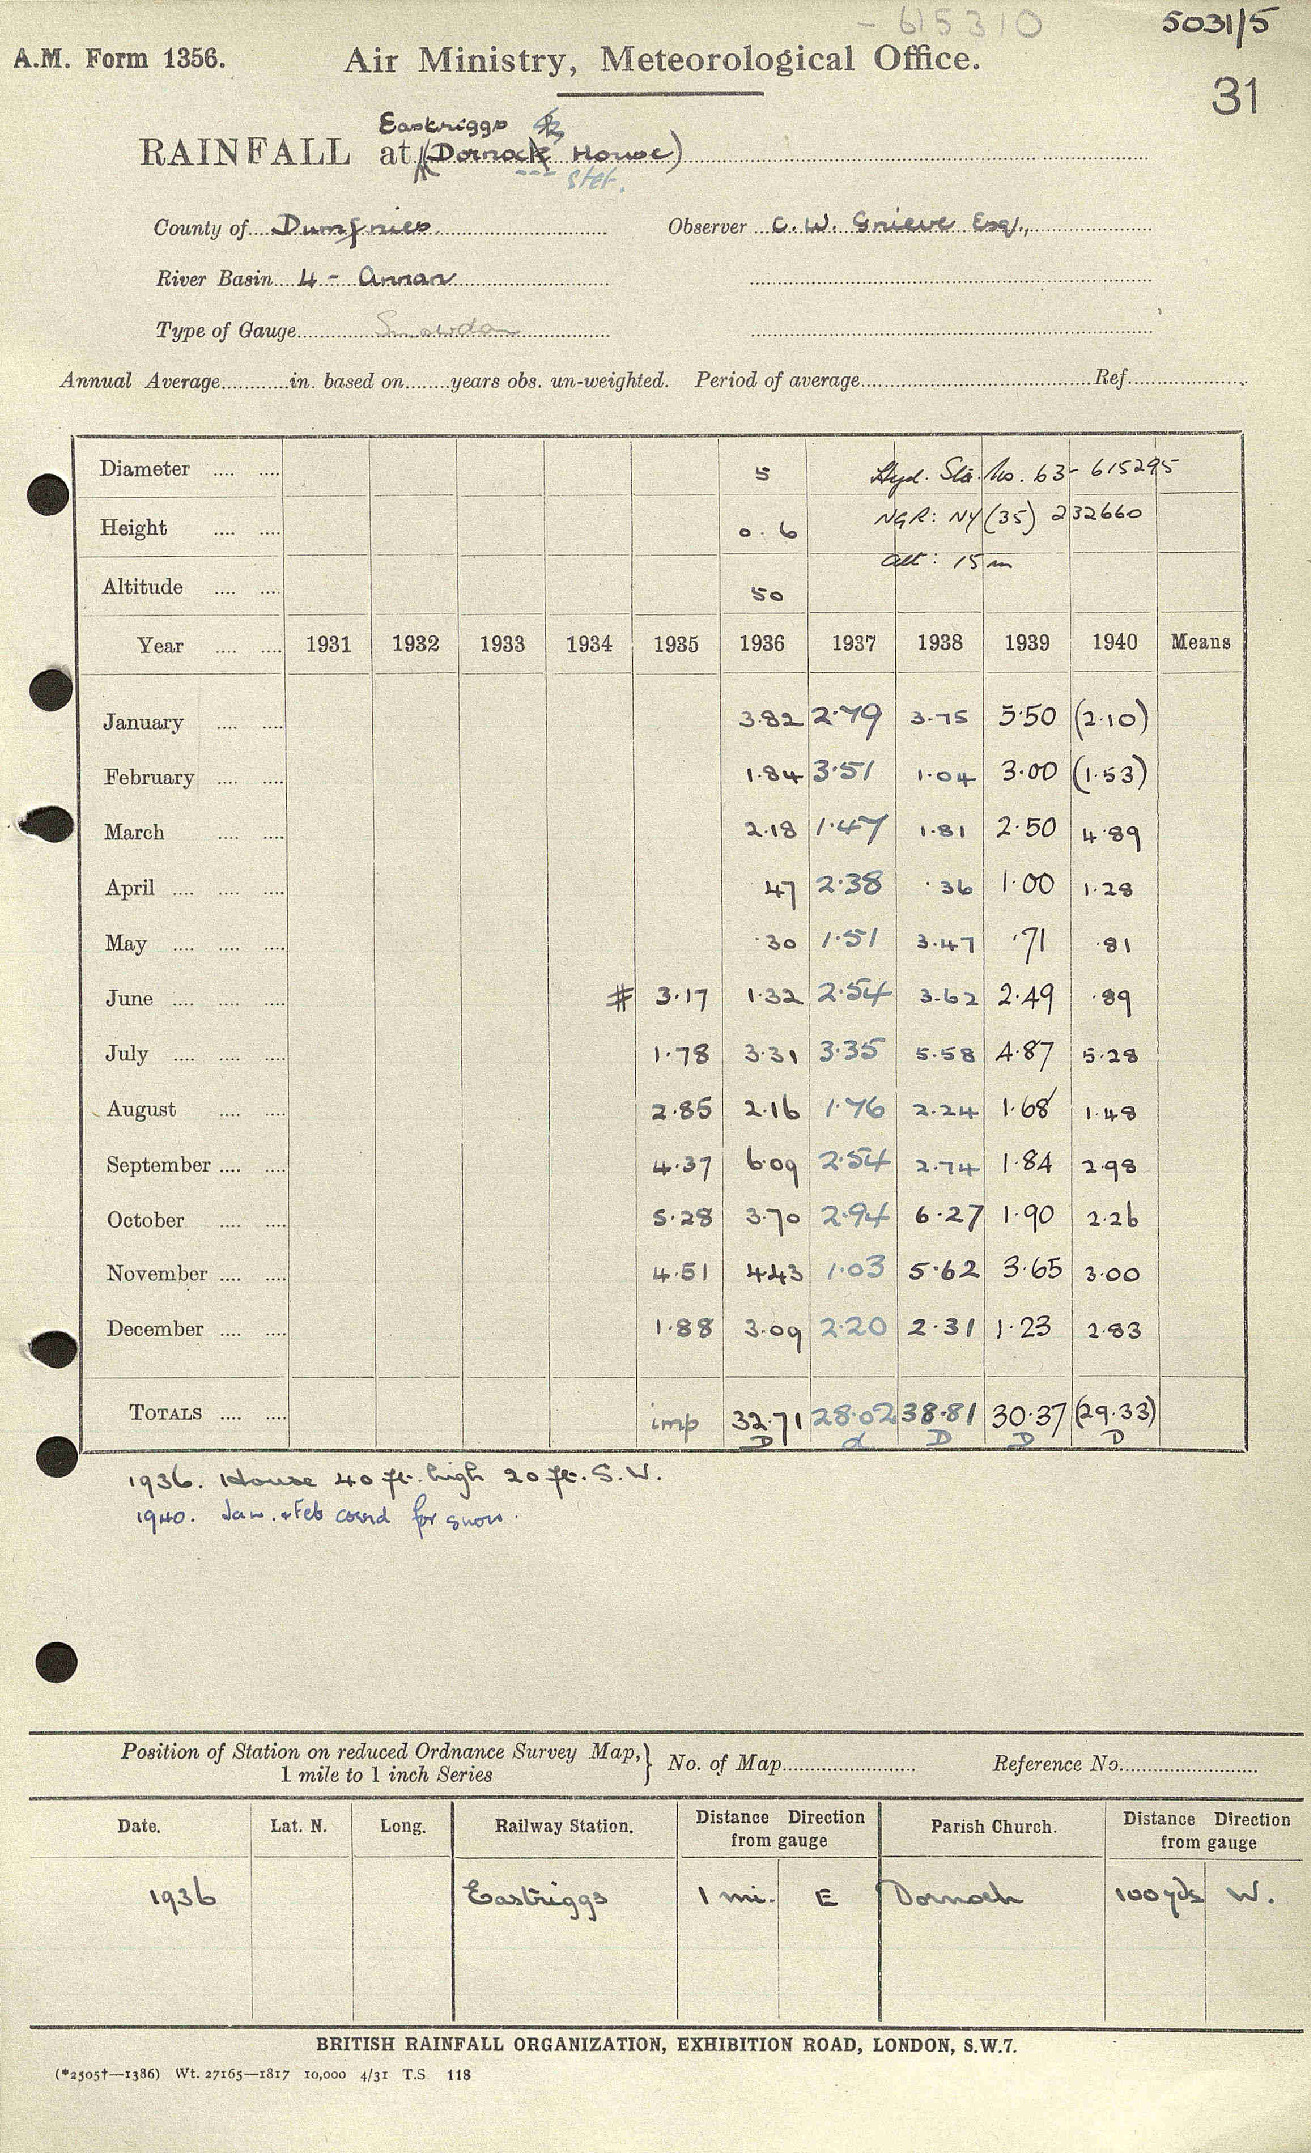 - 615310
5031/5
A.M. Form 1356.
Air Ministry, Meteorological Office.
31
Eastriggs
RAINFALL at (Dornock House)
stet.
County of Dumfries. Observer C. W. Grieve Esq.,
River Basin 4 - Annan
Type of Gauge Snowdon
Annual Average in. based on years obs. un-weighted. Period of average Ref
Diameter 5 Hyd. Sta. No. 63- 615295
Height 0.6 NGR: NY (35) 232660
Alt: 15m
Altitude 50
Year 1931 1932 1933 1934 1935 1936 1937 1938 1939 1940 Means
January 3.82 2.79 3.75 5.50 (2.10)
February 1.84 3.51 1.04 3.00 (1.53)
March 2.18 1.47 1.81 2.50 4.89
April 47 2.38 .36 1.00 1.28
May .30 1.51 3.47 .71 .81
June # 3.17 1.32 2.54 3.62 2.49 .89
July 1.78 3.31 3.35 5.58 4.87 5.28
August 2.85 2.16 1.76 2.24 1.68 1.48
September 4.37 6.09 2.54 2.74 1.84 2.98
October 5.28 3.70 2.94 6.27 1.90 2.26
November 4.51 4.43 1.03 5.62 3.65 3.00
December 1.88 3.09 2.20 2.31 1.23 2.83
TOTALS imp 32.71 28.02 38.81 30.37 (29.33)
D D D D
1936. House 40 ft. high 20 ft. S.W.
1940. Jan. & Feb corrd for snow.
Position of Station on reduced Ordnance Survey Map,} No. of Map Reference No.
1 mile to 1 inch Series
Date. Lat. N. Long. Railway Station. Distance Direction from gauge Parish Church. Distance Direction from gauge
1936 Eastriggs 1 mi. E Dornoch 100 yds W.
BRITISH RAINFALL ORGANIZATION, EXHIBITION ROAD, LONDON, S.W.7.
(*2505†—1386) Wt. 27165—1817 10,000 4/31 T.S 118